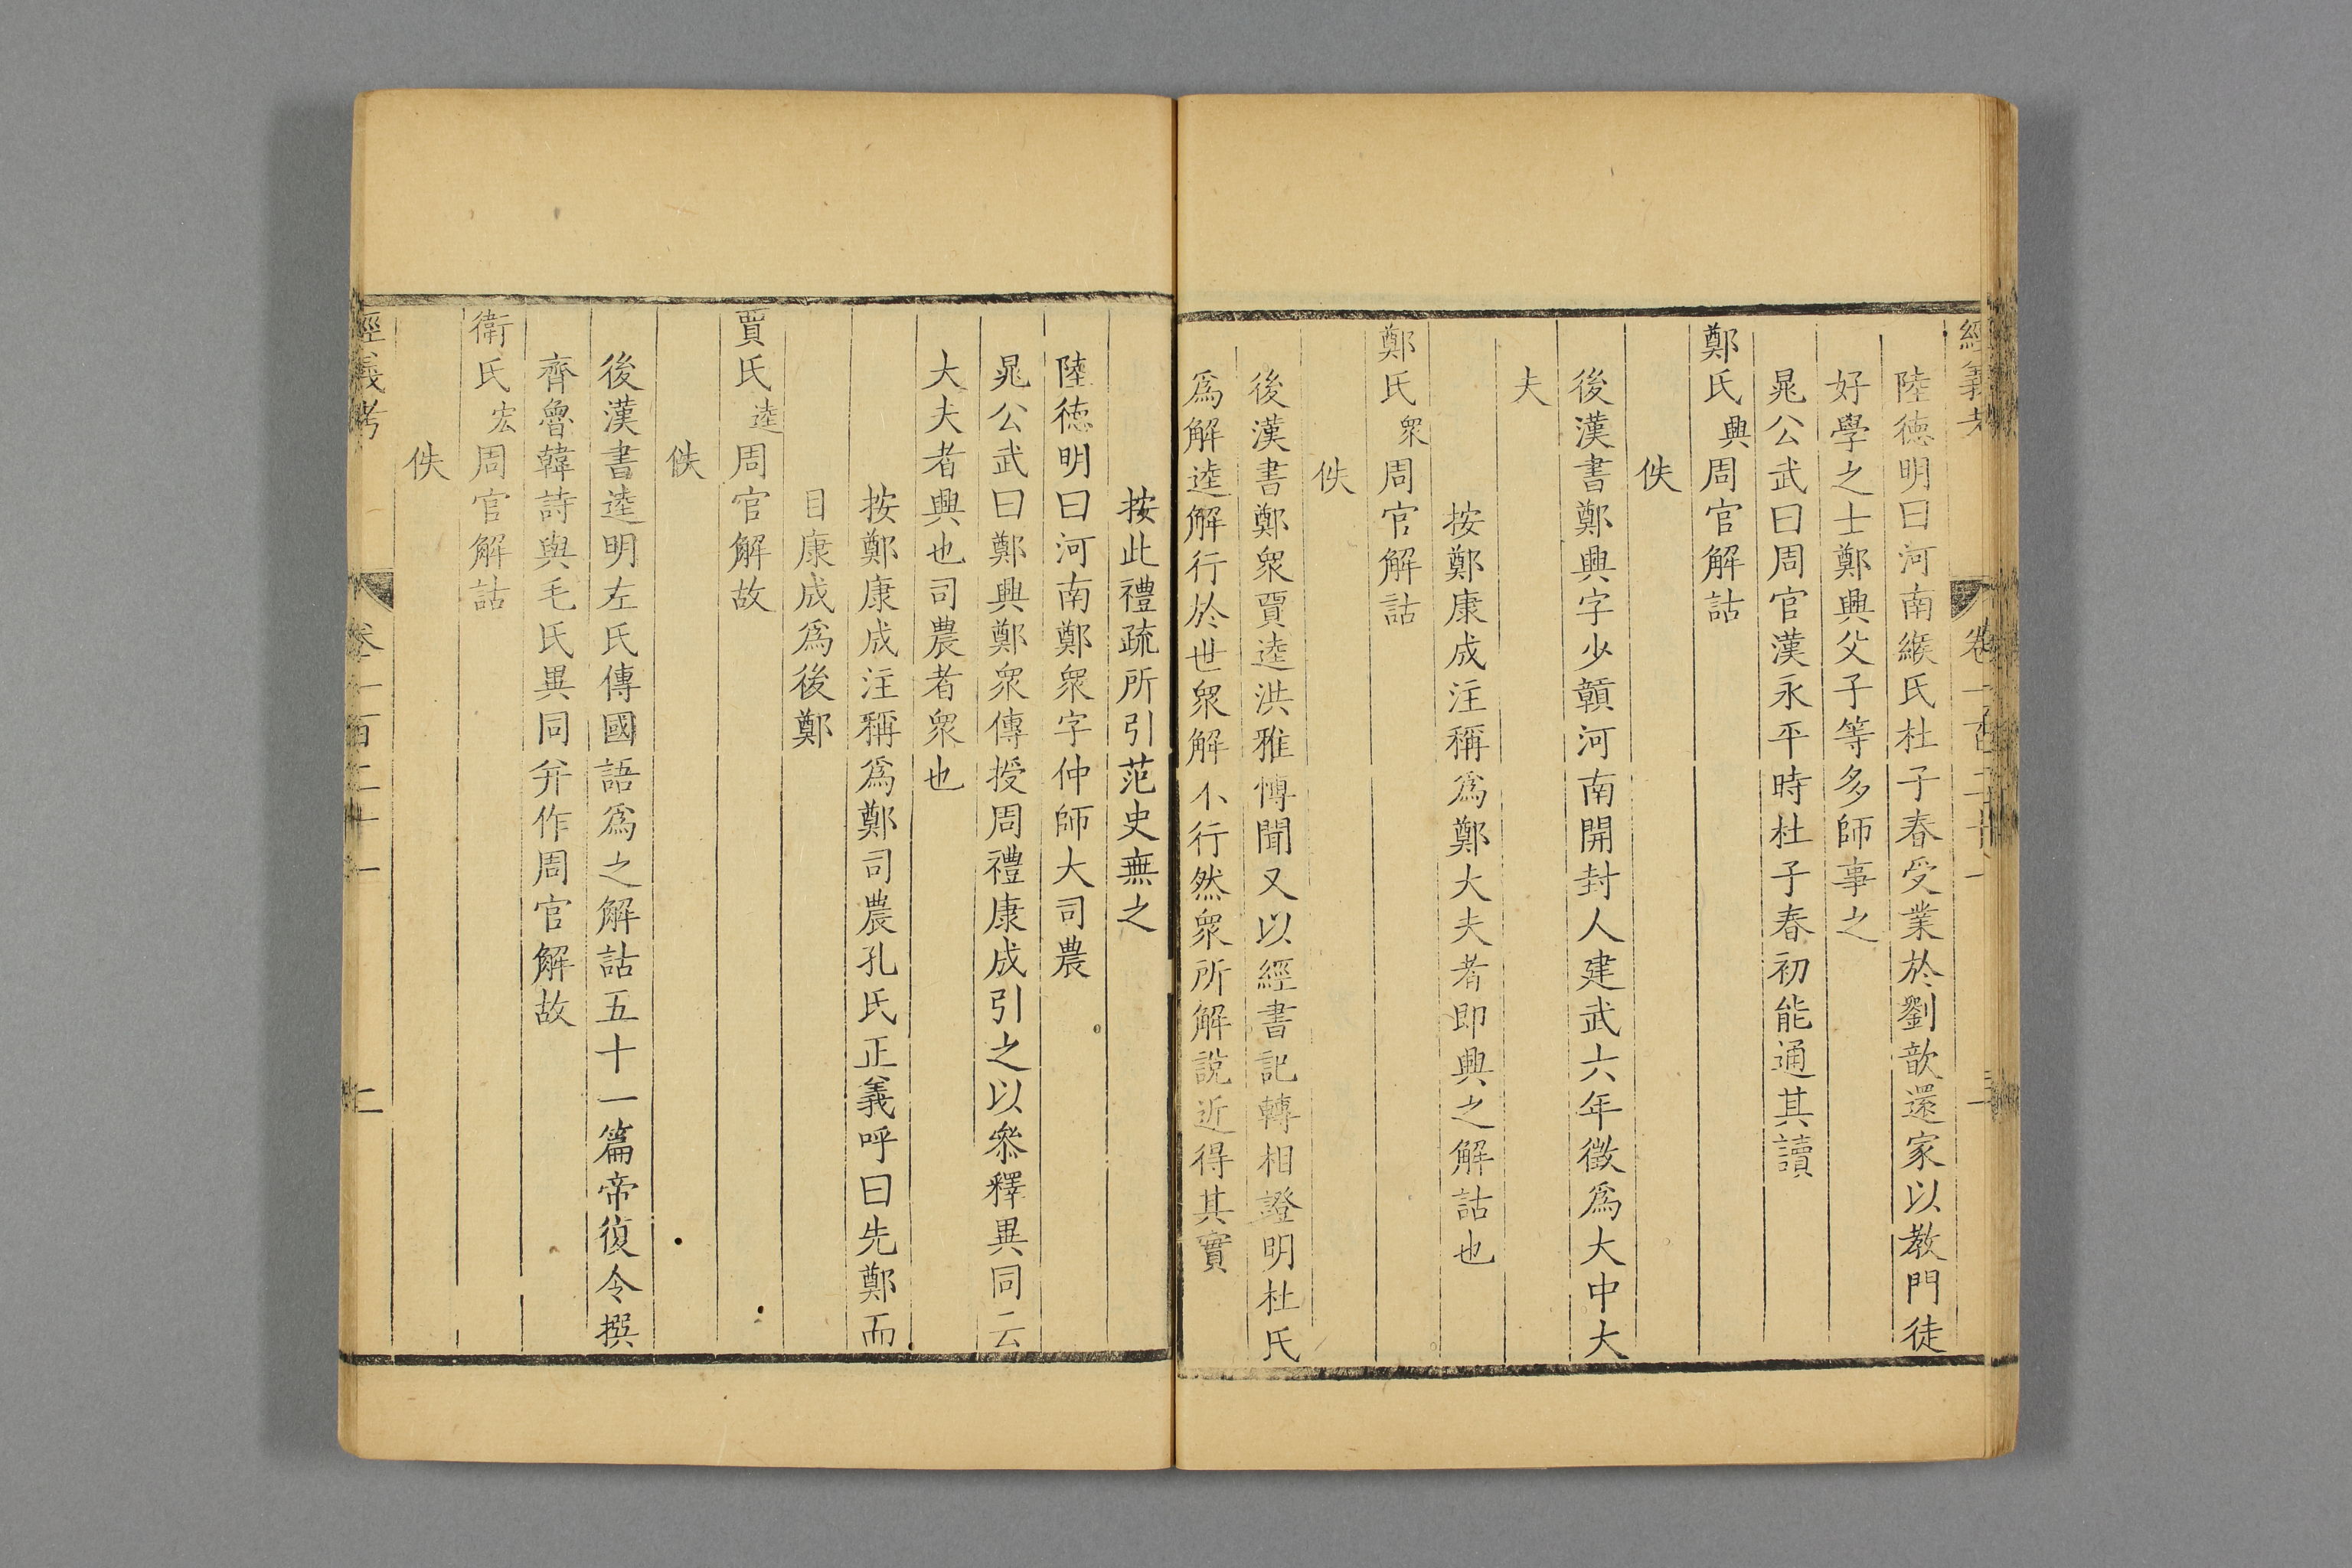 經義考 卷一百二十一 二
陸德明曰河南緱氏杜子春受業於劉歆還家以教門徒
好學之士鄭興父子等多師事之
晁公武曰周官漢永平時杜子春初能通其讀
鄭氏興周官解詁
佚
後漢書鄭興字少贛河南開封人建武六年徵爲大中大
夫
按鄭康成注稱爲鄭大夫者即興之解詁也
鄭氏衆周官解詁
佚
後漢書鄭衆賈逵洪雅博聞又以經書記轉相證明杜氏
爲解逵解行於世衆解不行然衆所解說近得其實
按此禮疏所引范史無之
陸德明曰河南鄭衆字仲師大司農
晁公武曰鄭興鄭衆傳授周禮康成引之以叅釋異同云
大夫者興也司農者衆也
按鄭康成注稱爲鄭司農孔氏正義呼曰先鄭而
目康成爲後鄭
賈氏逵周官解故
佚
後漢書逵明左氏傳國語爲之解詁五十一篇帝復令撰
齊魯韓詩與毛氏異同并作周官解故
衛氏宏周官解詁
佚
經義考 卷一百二十一 二